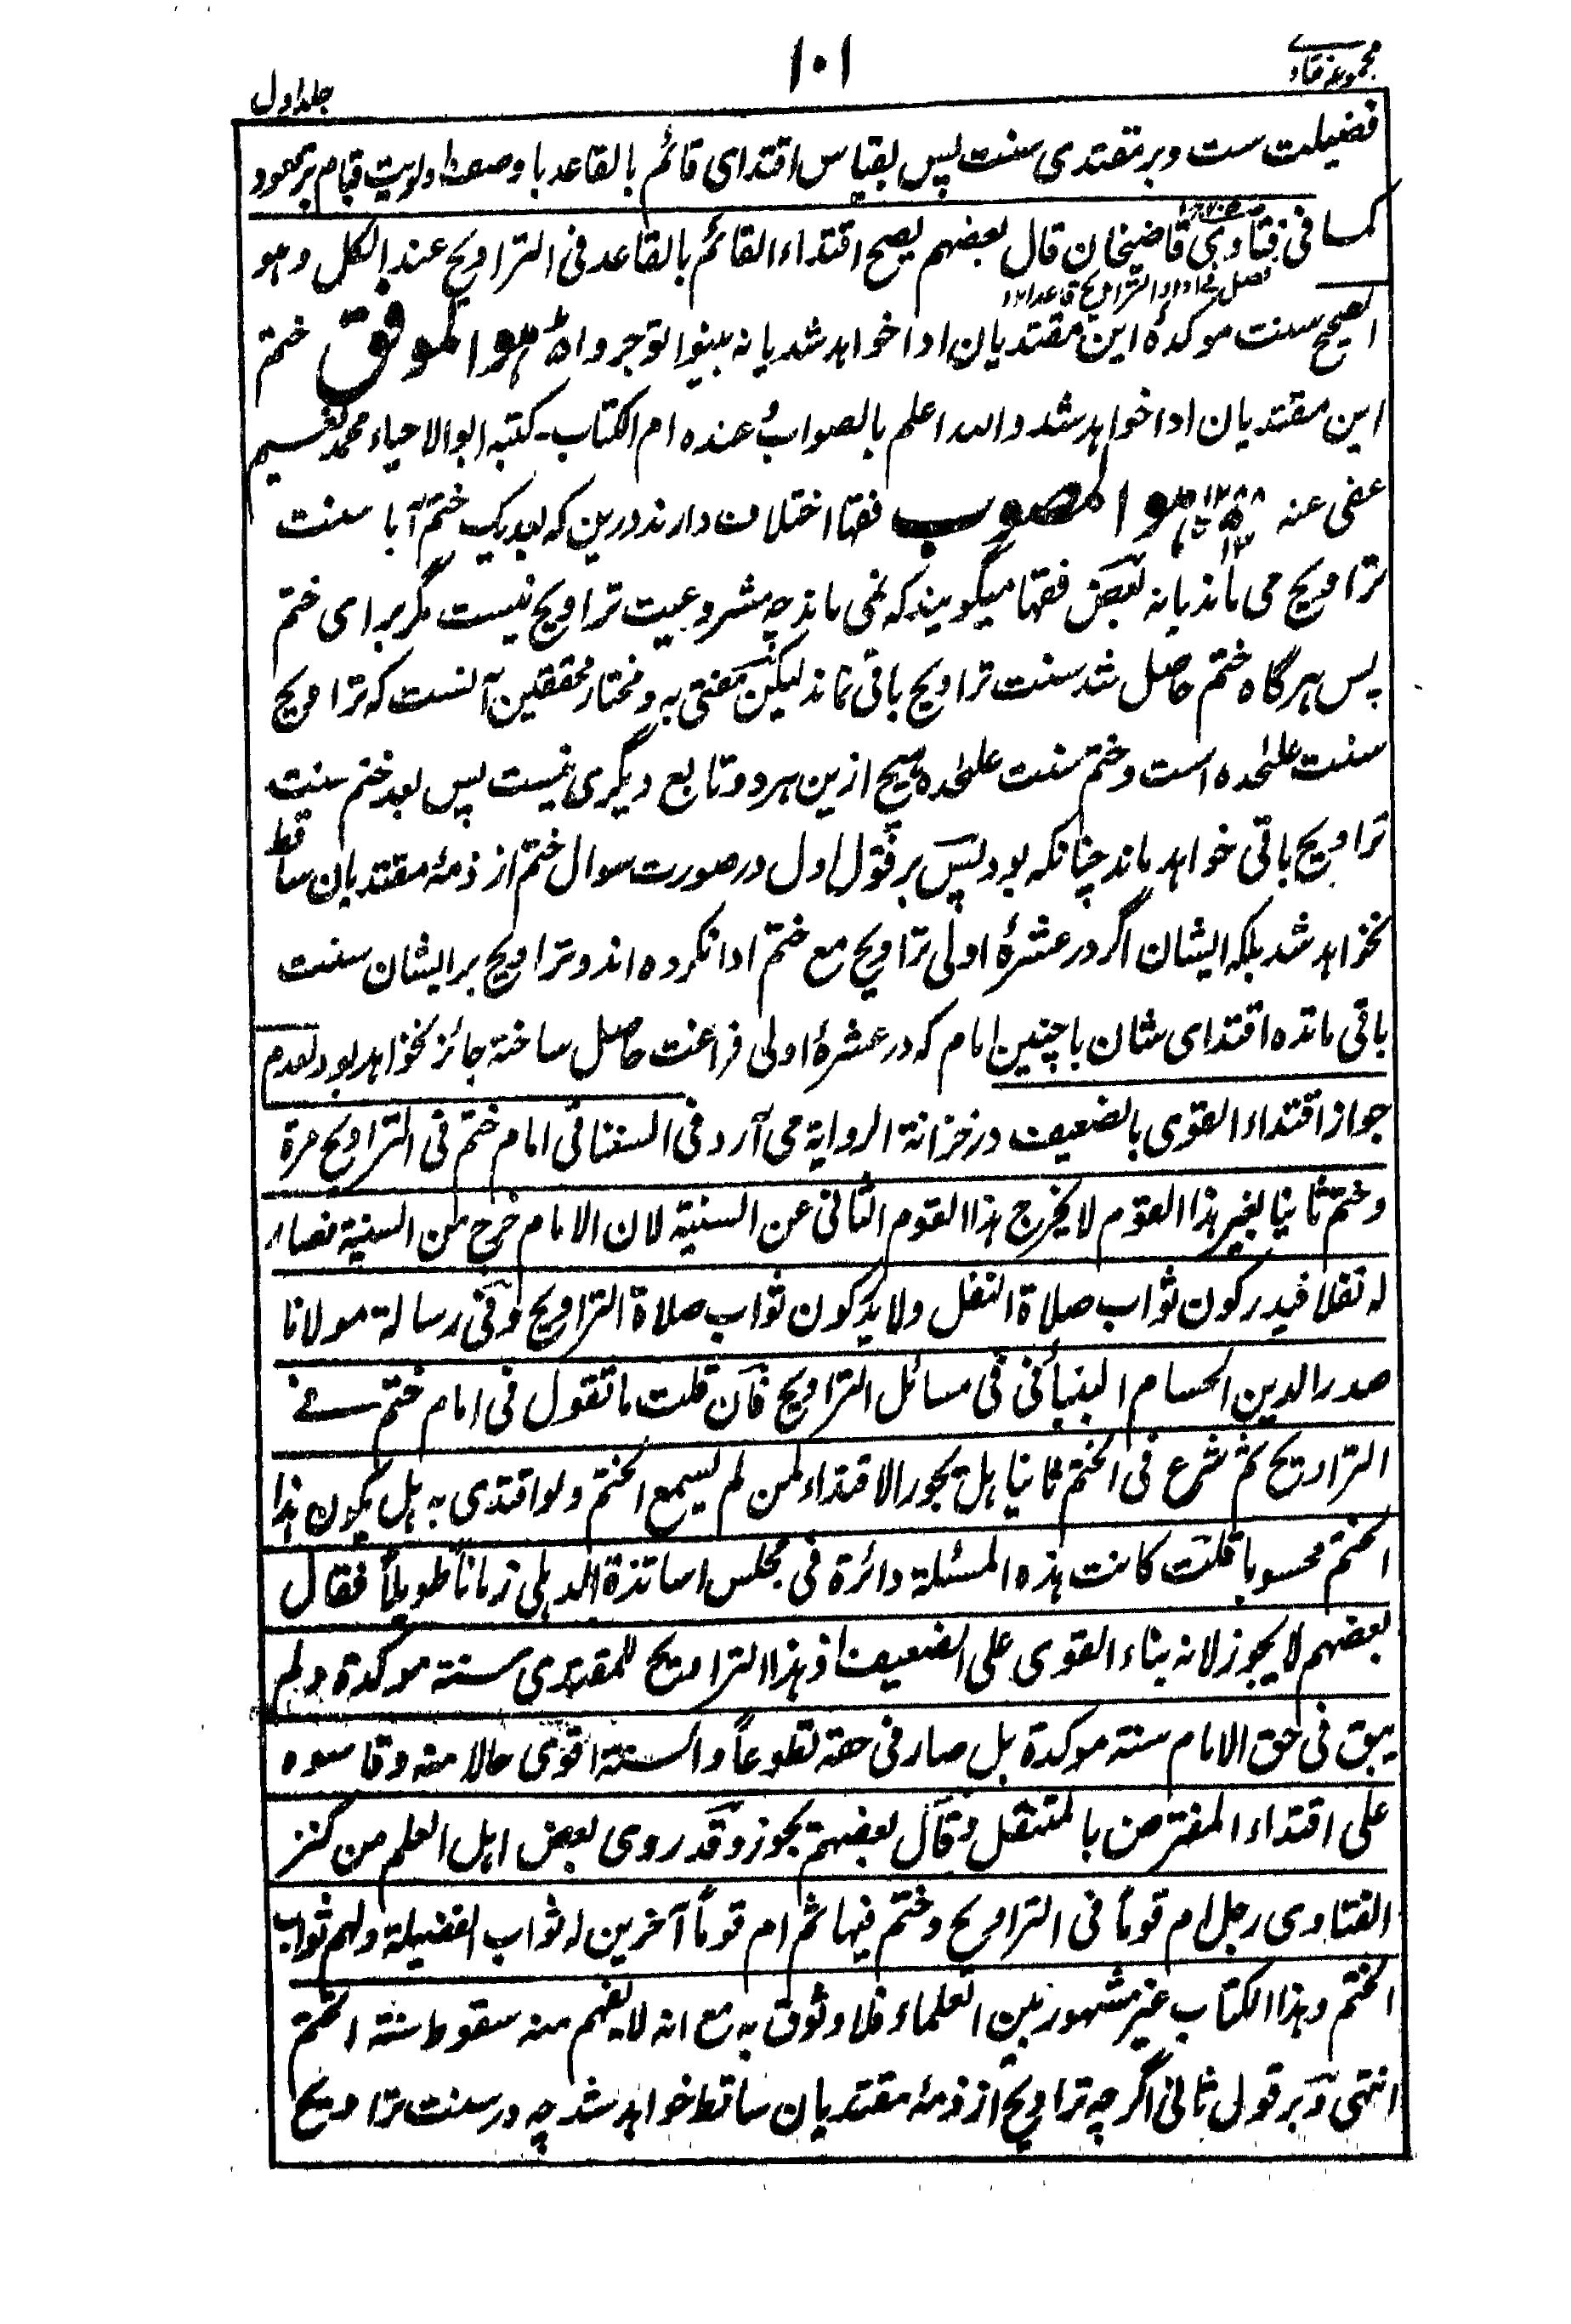 مجموعه فتاوے
۱۰۱
جلد اول
فضیلت ست و بر مقتدی سنت پس بقیاس اقتدای قائم بالقاعد با وصف اولویت قیام بر قعود
کما فی فتاوی قاضیخان قال بعضهم یصح اقتداء القائم بالقاعد فی التراویح عند الکل و هو
فصل فی اداء التراویح قاعدا
الصحیح سنت موکدهٔ این مقتدیان ادا خواهد شد یا نه بینوا توجروا هو الموفق ختم
این مقتدیان ادا خواهد شد والله اعلم بالصواب و عنده ام الکتاب۔ کتبه ابو الاحیاء محمد نعیم
عفی عنه هو المصوب فقها اختلاف دارند درین که بعد یک ختم آیا سنت
تراویح می ماند یا نه بعض فقها میگویند که نمی ماند چه مشروعیت تراویح نیست مگر برای ختم
پس هرگاه ختم حاصل شد سنت تراویح باقی نماند لیکن مفتی به و مختار محققین آنست که تراویح
سنت علٰحده است و ختم سنت علٰحده هیچ ازین هر دو تابع دیگری نیست پس بعد ختم سنت
تراویح باقی خواهد ماند چنانکه بود پس بر قول اول در صورت سوال ختم از ذمهٔ مقتدیان ساقط
نخواهد شد بلکه ایشان اگر در عشرهٔ اولی تراویح مع ختم ادا نکرده اند و تراویح بر ایشان سنت
باقی مانده اقتدای شان با چنین امام که در عشرهٔ اولی فراغت حاصل ساخته جائز نخواهد بود لعدم
جواز اقتداء القوی بالضعیف در خزانة الروایة می آرد فی السغناقی امام ختم فی التراویح مرة
و ختم ثانیا بغیر هذا القوم لا یخرج هذا القوم الثانی عن السنیة لان الامام خرج من السنیة فصار
له نفلا فیدرکون ثواب صلاة النفل ولا یدرکون ثواب صلاة التراویح و فی رسالة مولانا
صدر الدین الحسام البنبانی فی مسائل التراویح فان قلت ما تقول فی امام ختم فے
التراویح ثم شرع فی الختم ثانیا هل یجوز الاقتداء لمن لم یسمع الختم ولو اقتدی به هل یکون هذا
الختم محسوبا قلت کانت هذه المسئلة دائرة فی مجلس اساتذة الدهلی زماناً طویلاً فقال
بعضهم لا یجوز لانه بناء القوی علی الضعیف اذ هذا التراویح للمقتدی سنة موکدة ولم
یبق فی حق الامام سنة موکدة بل صار فی حقه تطوعاً والسنة اقوی حالا منه وقاسوه
علی اقتداء المفترض بالمتنفل وقال بعضهم یجوز وقد روی بعض اهل العلم من کنز
الفتاوی رجل ام قوماً فی التراویح وختم فیها ثم ام قوماً آخرین له ثواب الفضیلة ولهم ثواب
الختم وهذا الکتاب غیر مشهور بین العلماء فلا وثوق به مع انه لا یفهم منه سقوط سنة الختم
انتهی و بر قول ثانی اگر چه تراویح از ذمهٔ مقتدیان ساقط خواهد شد چه در سنت تراویح